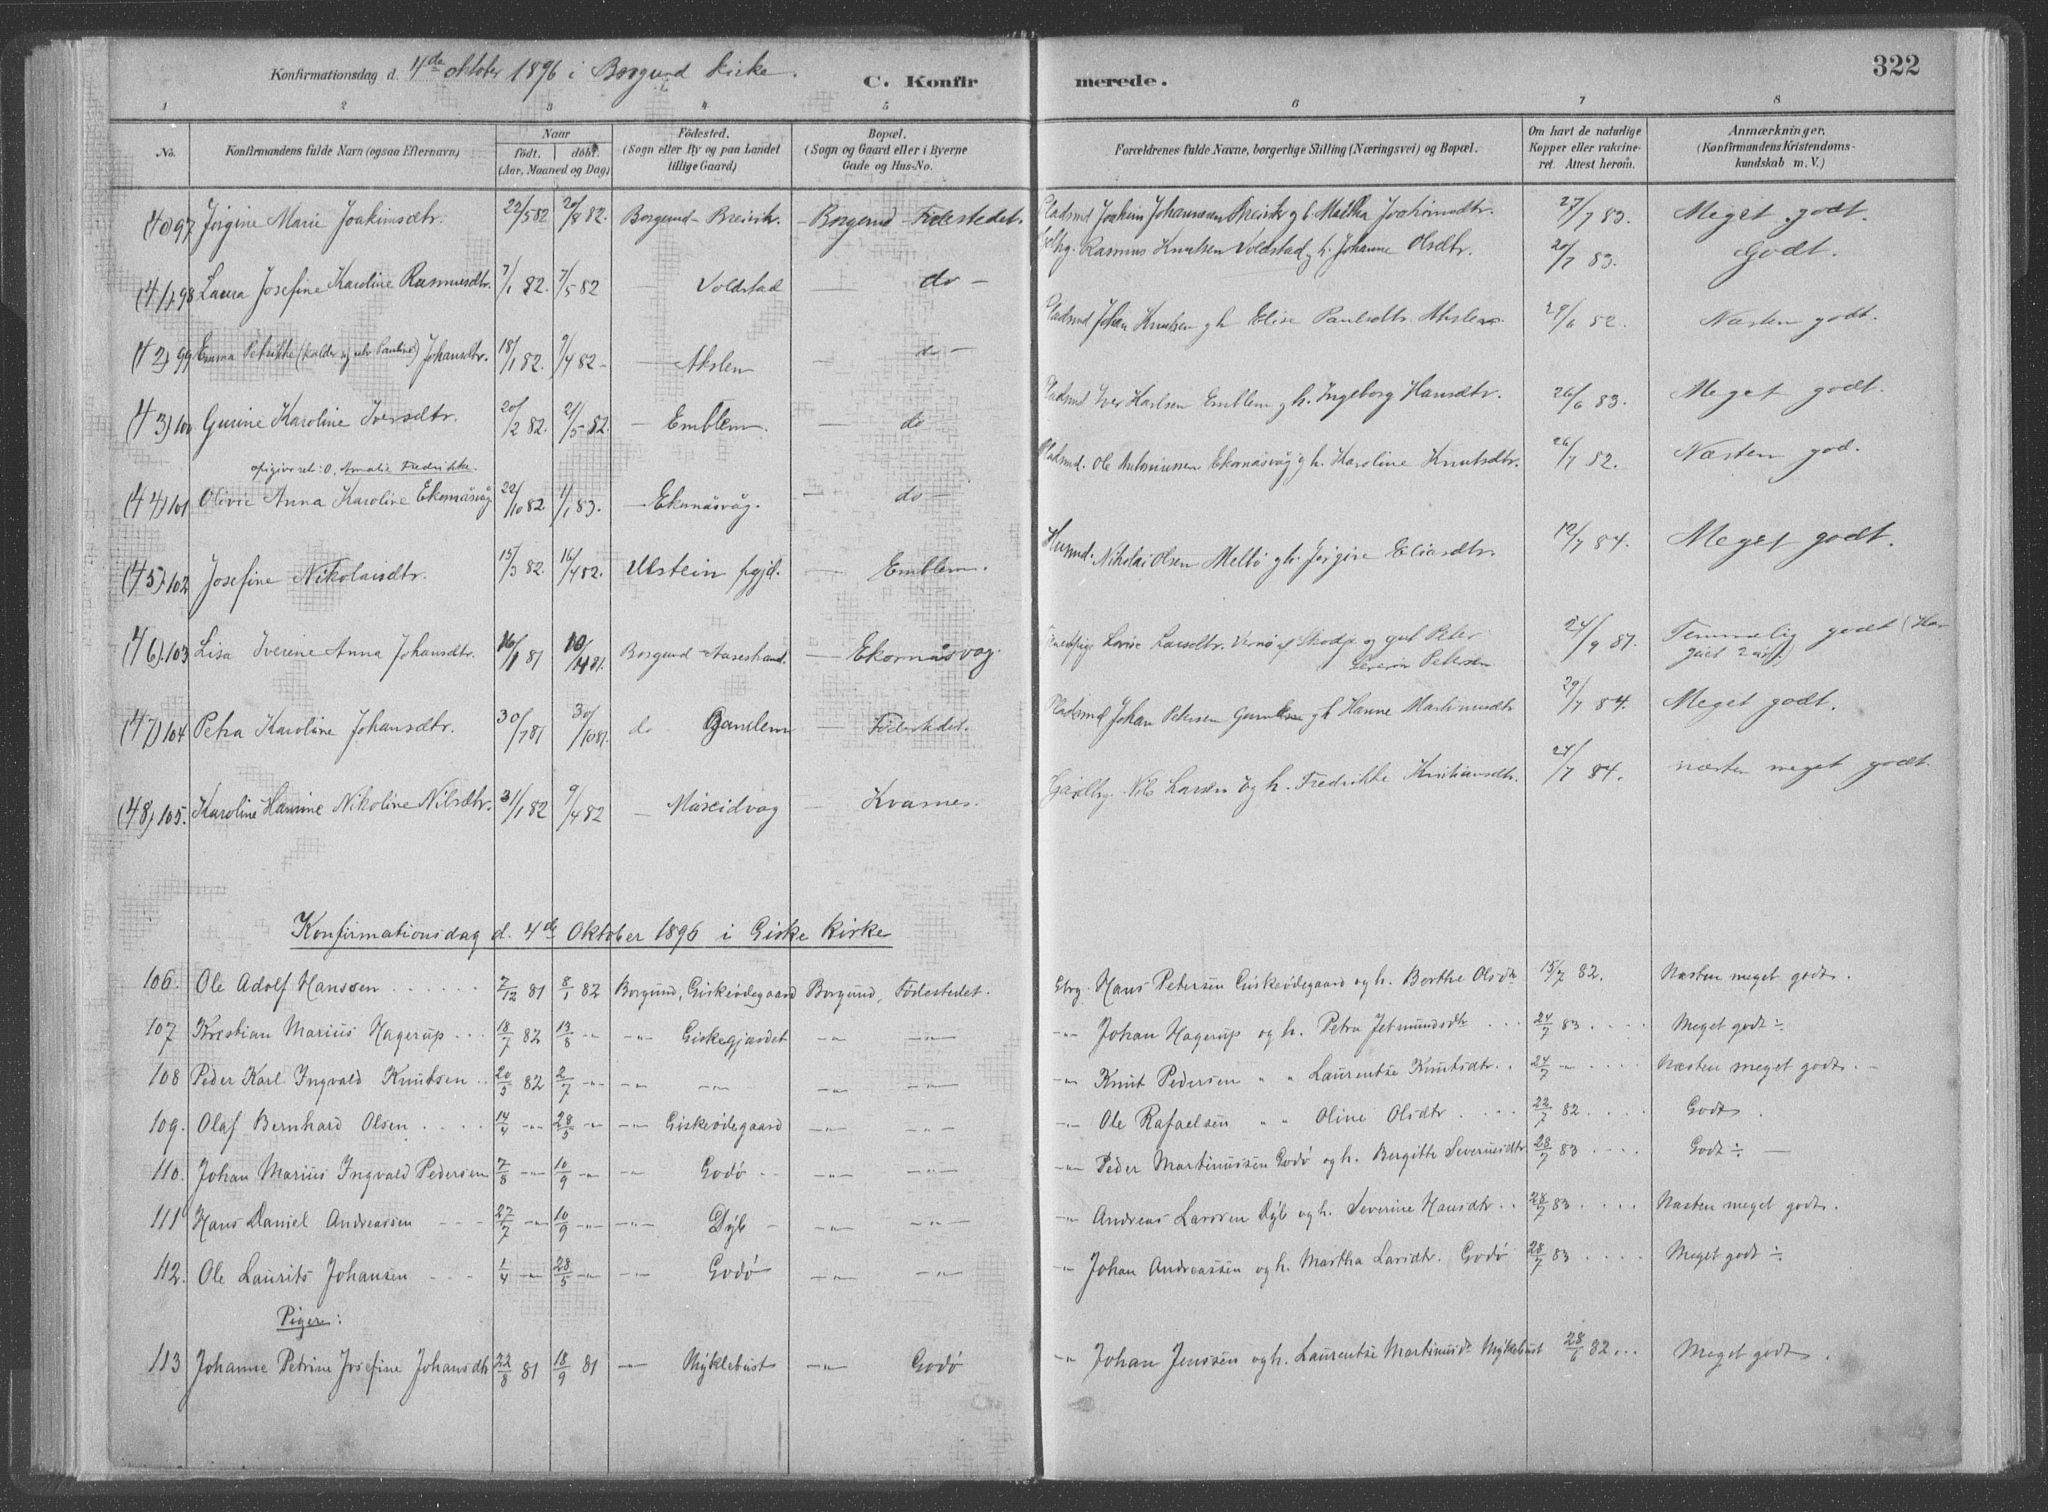 322
Konfirmationsdag d. 4de oktober 1896 i Borgund kirke.
C. Konfirmerede.
1 2 3 4 5 6 7 8
No. Konfirmandens fulde Navn (ogsaa Efternavn) Naar født. døbt. (Aar, Maaned og Dag) Fødested. (Sogn eller By og paa Landet tillige Gaard) Bopæl. (Sogn og Gaard eller i Byerne Gade og Hus-No. Forældrenes fulde Navne, borgerlige Stilling (Næringsvei) og Bopæl. Om havt de naturlige Kopper eller vakcineret. Attest herom. Anmærkninger. (Konfirmandens Kristendomskundskab m. V.)
(40) 97 Jørgine Marie Joakimsdtr. 22/5 82 20/8 82. Borgund - Breivik. - Borgund - Fødestedet. Pladsmd Joakim Johannesen Breivik g h. Joakimsdtr. 27/7 83. Meget godt.
(41) 98 Laura Josefine Karoline Rasmusdtr. 7/1 82. 7/5 82 - Voldstad - do - Rasmus Knutsen Voldstad g h. Johanne Olsdtr. 20/7 83. Godt.
(42) 99 Emma Petrikke (kalder sig selv Pauline) Johansdtr. 18/1 82. 9/4 82 - - Akslen - do - Pladsmd Johan Knutsen g h Elise Paulsdtr. Akslen 29/6 82. Næsten godt.
(43) 100 Gurine Karoline Iversdtr. 20/2 82. 21/5 82. - Emblem. - do - Pladsmd Iver Karlsen Emblem g h. Ingeborg Hansdtr. 26/6 83. Meget godt.
opgives ret: O. Amalie Fredrikke.
(44) 101 Olivie Anna Karoline Ekornåsvåg 22/10 82. 1/1 83. - Ekornåsvåg. - do - Pladsmd. Ole Antoniussen Ekornåsvåg g h. Karoline Knutsdtr. 26/7 82. Næsten god.
(45) 102 Josefine Nikolaisdtr. 15/3 82. 16/4 82. Ulstein pgjd. - Emblem. Husmd. Nikolai Olsen Melbø g h. Jørgine Eliasdtr. 12/7 84. Meget godt.
(46) 103 Lisa Iverine Anna Johansdtr. 16/1 81 10/4 81. Borgund - Aasestrand. - Ekornåsvag. Lovise Larsdtr. Skodje og Peter Severin Petersen 24/9 81. Temmelig godt (Har gået 2 år.)
(47) 104 Petra Karoline Johansdtr. 30/7 81 30/10 81. do - Fødestedet. Pladsmd Johan Petersen g h Hanne Martinusdtr 29/7 84. Meget godt.
(48) 105. Karoline Hansine Nikoline Nilsdtr. 31/1 82 9/4 82 - Måseidvag - Kvasnes. Gårdbg. Nils Larsen og h. Fredrikke Kristiansdtr. 24/7 84. næsten meget godt.
Konfirmationsdag d. 4de Oktober 1896 i Giske kirke
106. Ole Adolf Hanssen . . . . . . 7/12 81 8/1 82 Borgund, Giskeødegaard Borgund, Fødestedet. Gbrg. Hans Petersen Giskeødegaard og h. Berthe Olsdtr 15/7 82. Næsten meget godt.
107 Kristian Marius Hagerup . . . 18/7 82 13/8 -"- -"- Giskegjærdet -"- -"- -"- Johan Hagerup og h. Petra Jetmundsdtr . . . 24/7 83 . . . . Meget godt ÷
108 Peder Karl Ingvald Knutsen . . 20/5 82 2/7 -"- -"- -"- -"- -"- Knut Pedersen " " Laurentse Knutsdtr. . 24/7 -"- . . . . Næsten meget godt. -
109. Olaf Bernhard Olsen . . . . 14/4 -"- 28/5 -"- -"- Giskeødegaard -"- -"- -"- Ole Rafaelsen " " Oline Olsdtr . . . . 22/7 82 . . . . Godt
110. Johan Marius Ingvald Pedersen 7/8 -"- 10/9 -"- -"- Godø . . -"- -"- -"- Peder Martinussen Godø og h. Bergitte Severinsdtr 28/7 83 . . . . Godt ÷ -
111 Hans Daniel Andreassen - - - 27/7 -"- 10/9 -"- -"- Dyb - -"- -"- -"- Andreas Larsen Dyb og h. Severine Hansdtr . . 28/7 83 . . . . Næsten meget godt.
112. Ole Laurits Johansen - - - 1/4 -"- 28/5 -"- -"- Godø -"- -"- " Johan Andreassen og h. Martha Larsdtr. Godø 28/7 83 . . . . Meget godt ÷
Piger:
113 Johanne Petrine Josefine Johansdtr 22/8 81 18/9 81 -"- Myklebust -"- Godø -"- Johan Jenssen og h. Laurentse Martinusdtr Myklebust 28/6 82 . . . Meget godt .